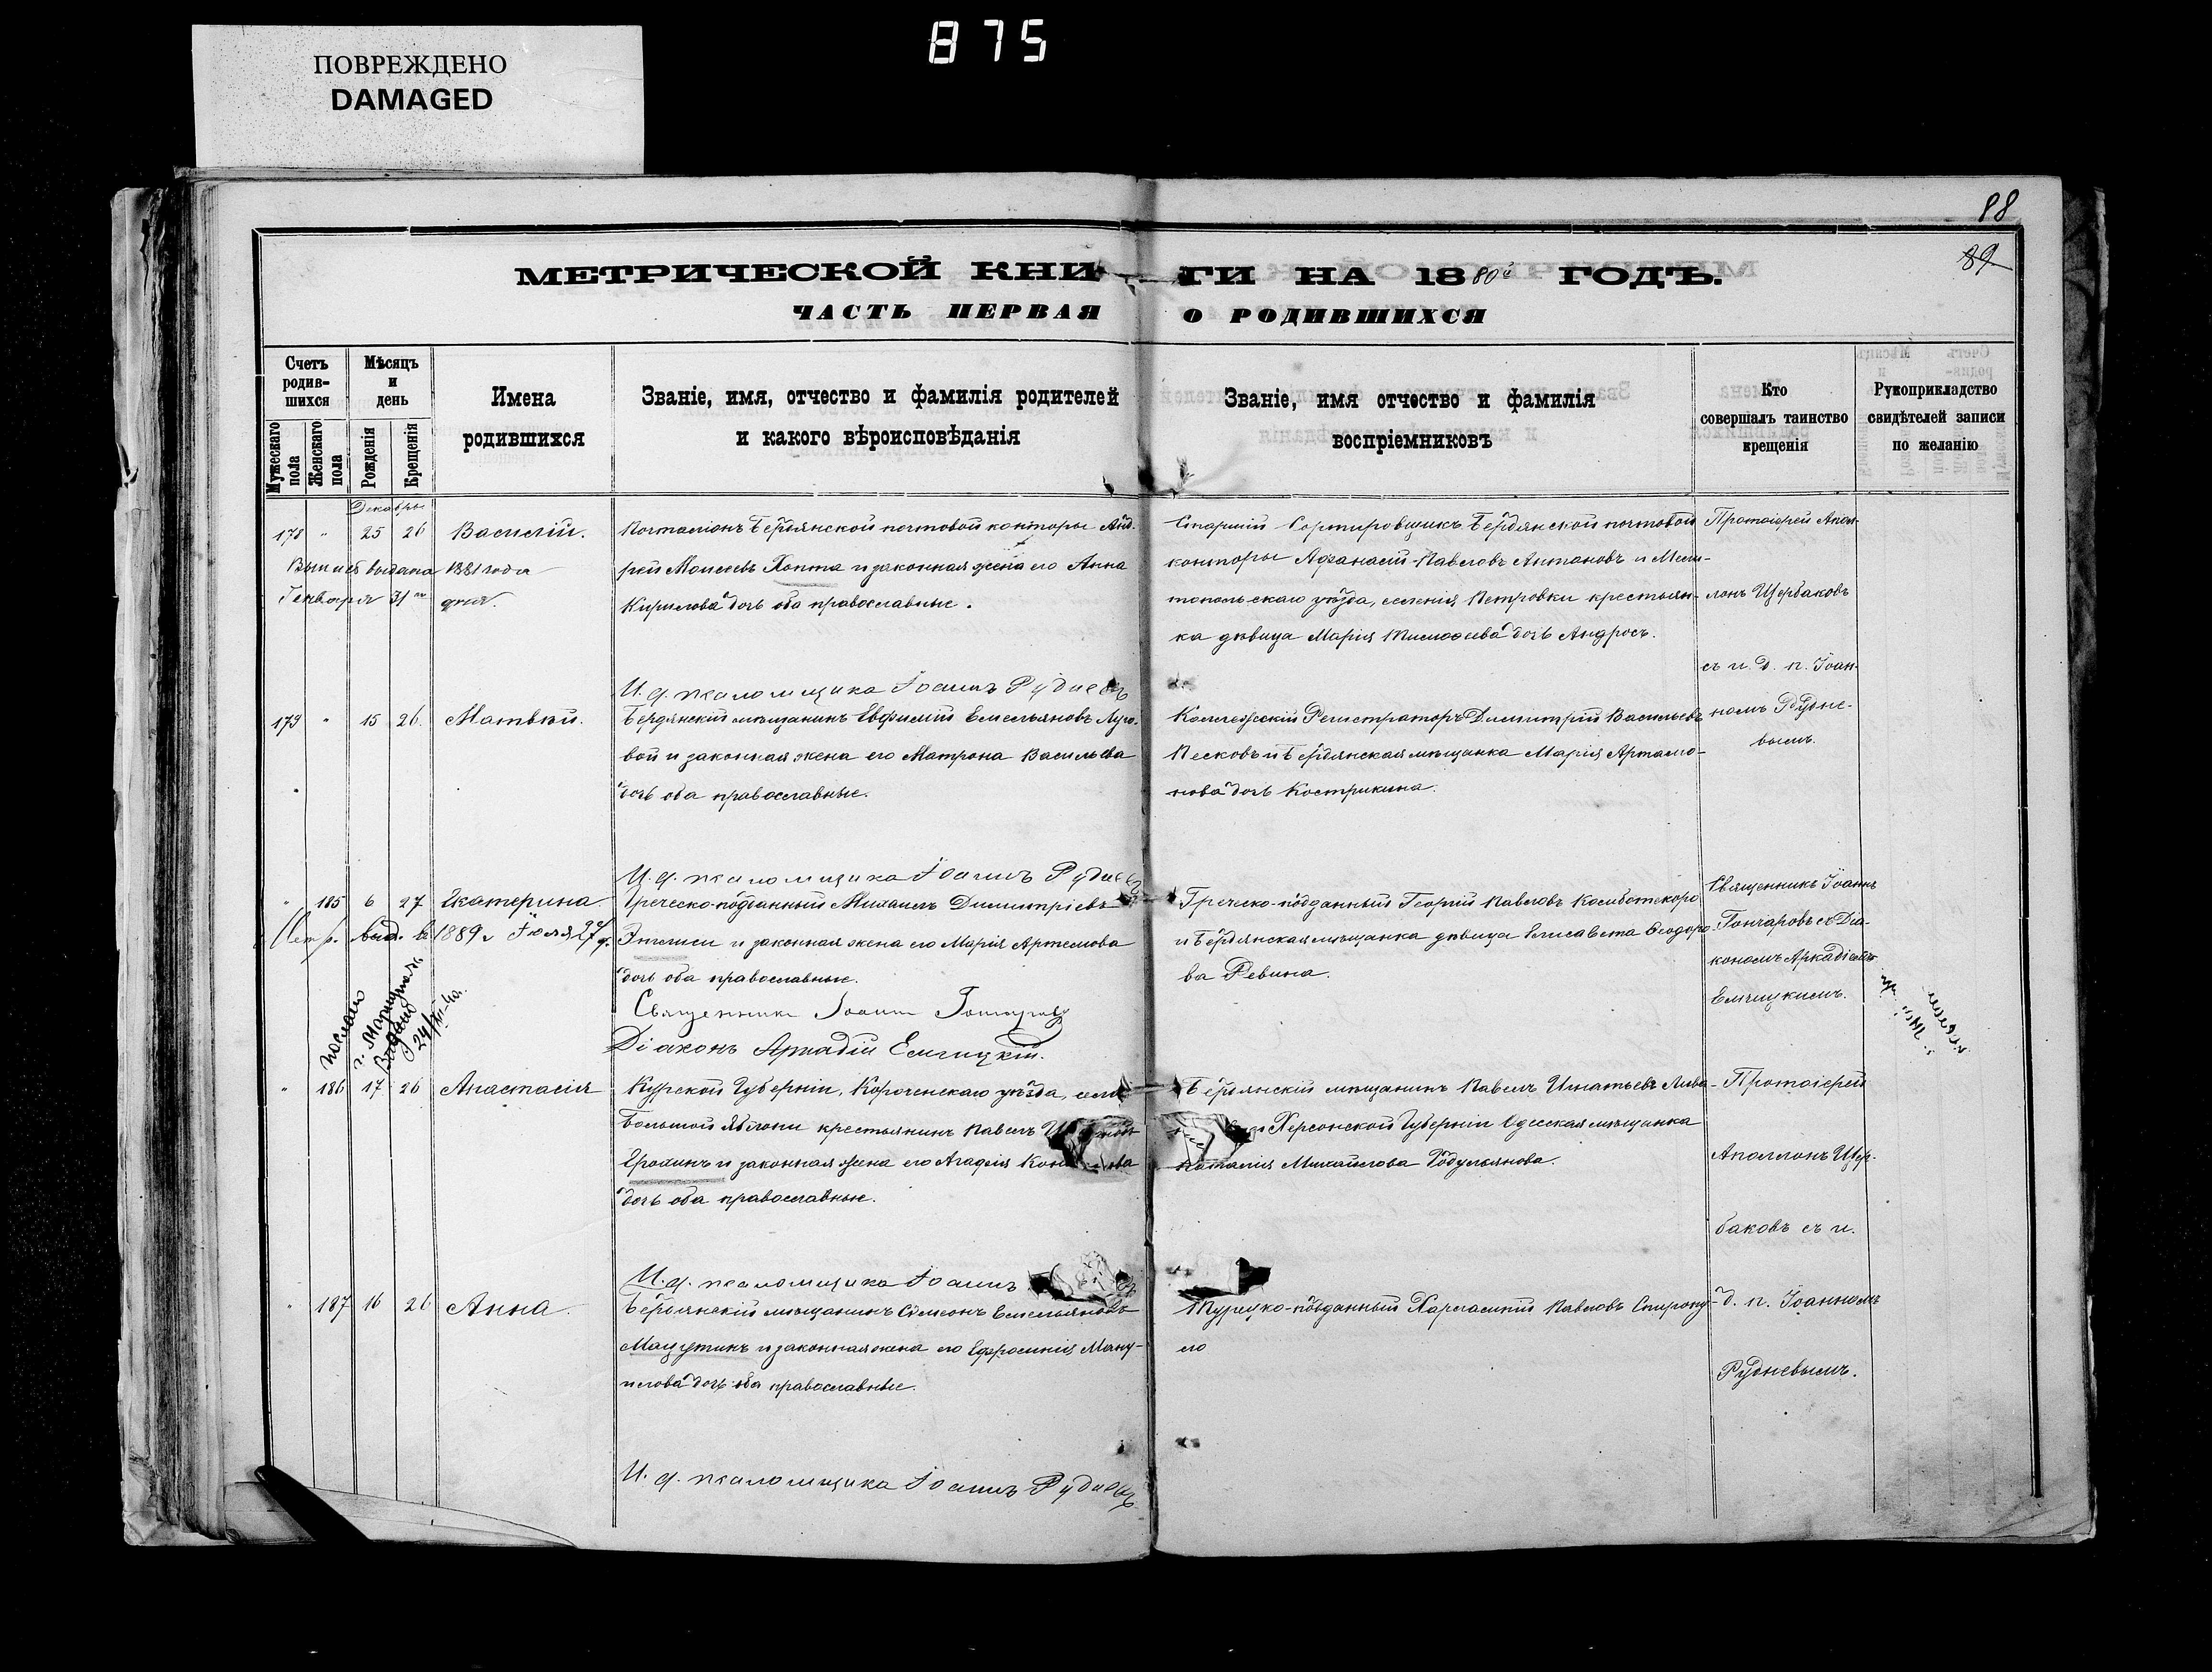 ПОВРЕЖДЕНО
DAMAGED
875
88
89
МЕТРИЧЕСКОЙ КНИГИ НА 1880й ГОДЪ.
ЧАСТЬ ПЕРВАЯ О РОДИВШИХСЯ
Счетъ родив-шихся
Мужескаго пола
Женскаго пола
Мѣсяцъ и день
Рожденія
Крещенія
Имена родившихся
Званіе, имя, отчество и фамилія родителей
и какого вѣроисповѣданія
Званіе, имя отчество и фамилія
воспріемниковъ
Кто
совершалъ таинство
крещенія
Рукоприкладство
свидѣтелей записи
по желанію
Декабрь
178 " 25 26 Василій.
выдана 1881 года
Генваря 31го дня.
Почталіонъ Бердянской почтовой конторы Анд-
рей Моисеевъ Хопта и законная жена его Анна
Кирилова дочь оба православные.
Старшій Сортировщикъ Бердянской почтовой
конторы Афанасій Павловъ Антоновъ и Мели-
топольскаго уѣзда, селенія Петровки крестьян-
ка дѣвица Марія Тимофеева дочь Андросъ.
Протоіерей Апол-
лонъ Щербаковъ
съ и. д. п. Іоан-
номъ Рудне-
вымъ.
И. д. псаломщика Іоаннъ Рудневъ
179 " 15 26 Матвѣй.
Бердянскій мѣщанинъ Евфимій Емельяновъ Луго-
вой и законная жена его Матрона Васильева
дочь оба православные.
Коллежскій Регистраторъ Димитрій Васильевъ
Песковъ и Бердянская мѣщанка Марія Артамо-
нова дочь Кострикина.
И. д. псаломщика Іоаннъ Рудневъ
" 185 6 27 Екатерина
выд. въ 1889 г Іюля 27 д.
Греческо-подданный Михаилъ Димитріевъ
и законная жена его Марія Артемова
дочь оба православные.
Греческо-подданный Георгій Павловъ
и Бердянская мѣщанка дѣвица Елисавета Ѳеодоро-
ва Ревина.
Священникъ Іоаннъ
Гончаровъ съ Діа-
кономъ Аркадіемъ
Елчицкимъ.
Священникъ Іоаннъ Гончаровъ
Діаконъ Аркадій Елчицкій.
" 186 17 26 Анастасія
Курской Губерніи, Короченскаго уѣзда, села
Большой Яблони крестьянинъ Павелъ
Ерохинъ и законная жена его Агафія
дочь оба православные.
Бердянскій мѣщанинъ Павелъ Игнатьевъ
Херсонской Губерніи Одесская мѣщанка
Наталія Михайлова
Протоіерей
Аполлонъ Щер-
баковъ съ и.
И. д. псаломщика Іоаннъ
" 187 16 26 Анна.
Бердянскій мѣщанинъ Сѵмеонъ Емельяновъ
Мацутинъ и законная жена его ЕфросиніяМану-
илова дочь оба православные.
Турецко-подданный Харлампій Павловъ Спиропу-
ло
д. п. Іоанномъ
Рудневымъ.
И. д. псаломщика Іоаннъ Рудневъ